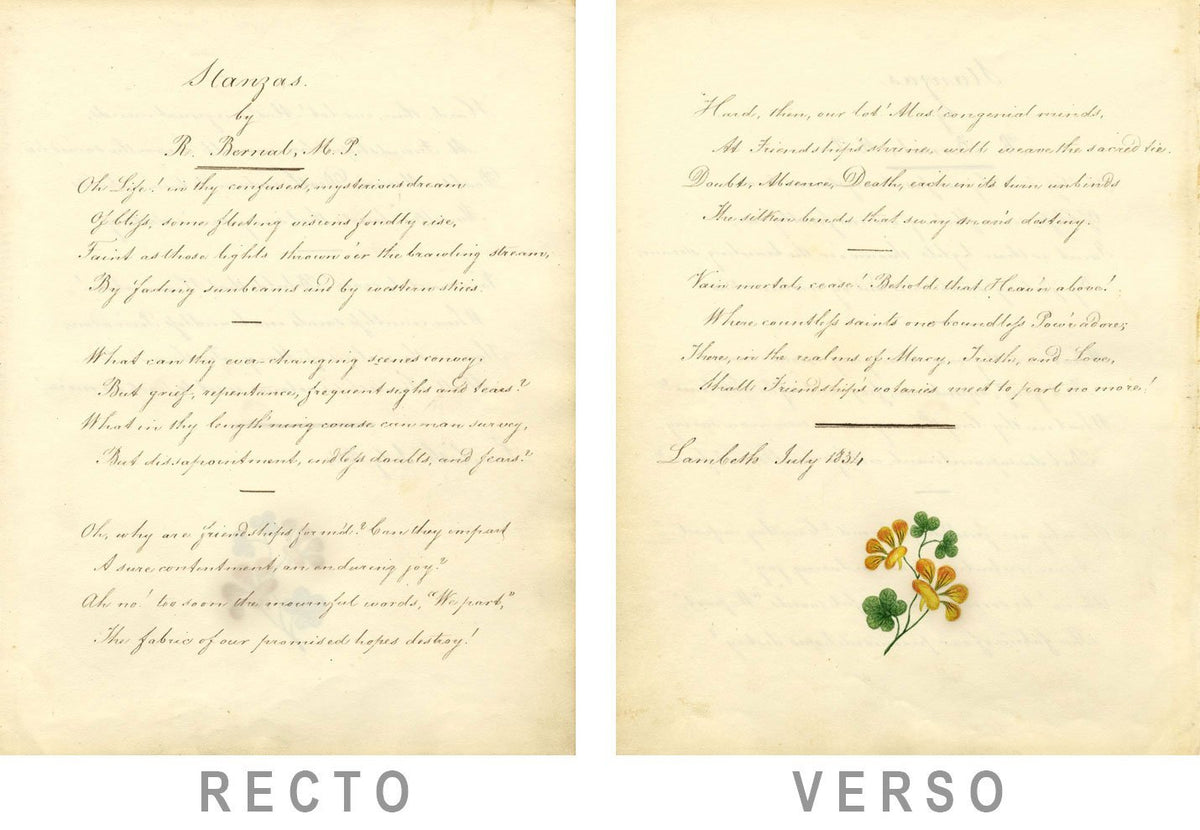 Stanzas.
by
R. Bernal, M.P.
Oh Life! in thy confused, mysterious dream
Of bliss, some fleeting visions fondly rise,
Faint as those lights thrown o'er the brawling stream,
By fading sunbeams and by western skies.
What can thy ever-changing scenes convey,
But grief, repentance, frequent sighs and tears?
What in thy length'ning course can man survey,
But dissapointment, endless doubts, and fears?
Oh, why are friendships form'd? Can they impart
A sure contentment, an enduring joy?
Ah no! too soon the mournful words, "We part,"
The fabric of our promised hopes destroy!
RECTO
Hard, then, our lot! Alas! congenial minds,
At Friendship's shrine, will weave the sacred tie.
Doubt, Absence, Death, each in its turn unbinds
The silken bonds, that sway man's destiny.
Vain mortal, cease! Behold that Heav'n above!
Where countless saints one boundless Pow'r adore;
There, in the realms of Mercy, Truth, and Love,
Shall Friendship's votaries meet to part no more!
Lambeth July 1834
VERSO